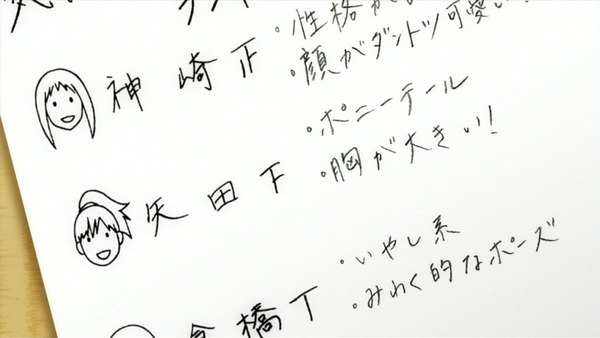 ・性格が
神崎 正 ・顔がダントツ可愛い!
・ポニーテール
矢田 下 ・胸が大きい!
・いやし系
倉橋 丅 ・みわく的なポーズ